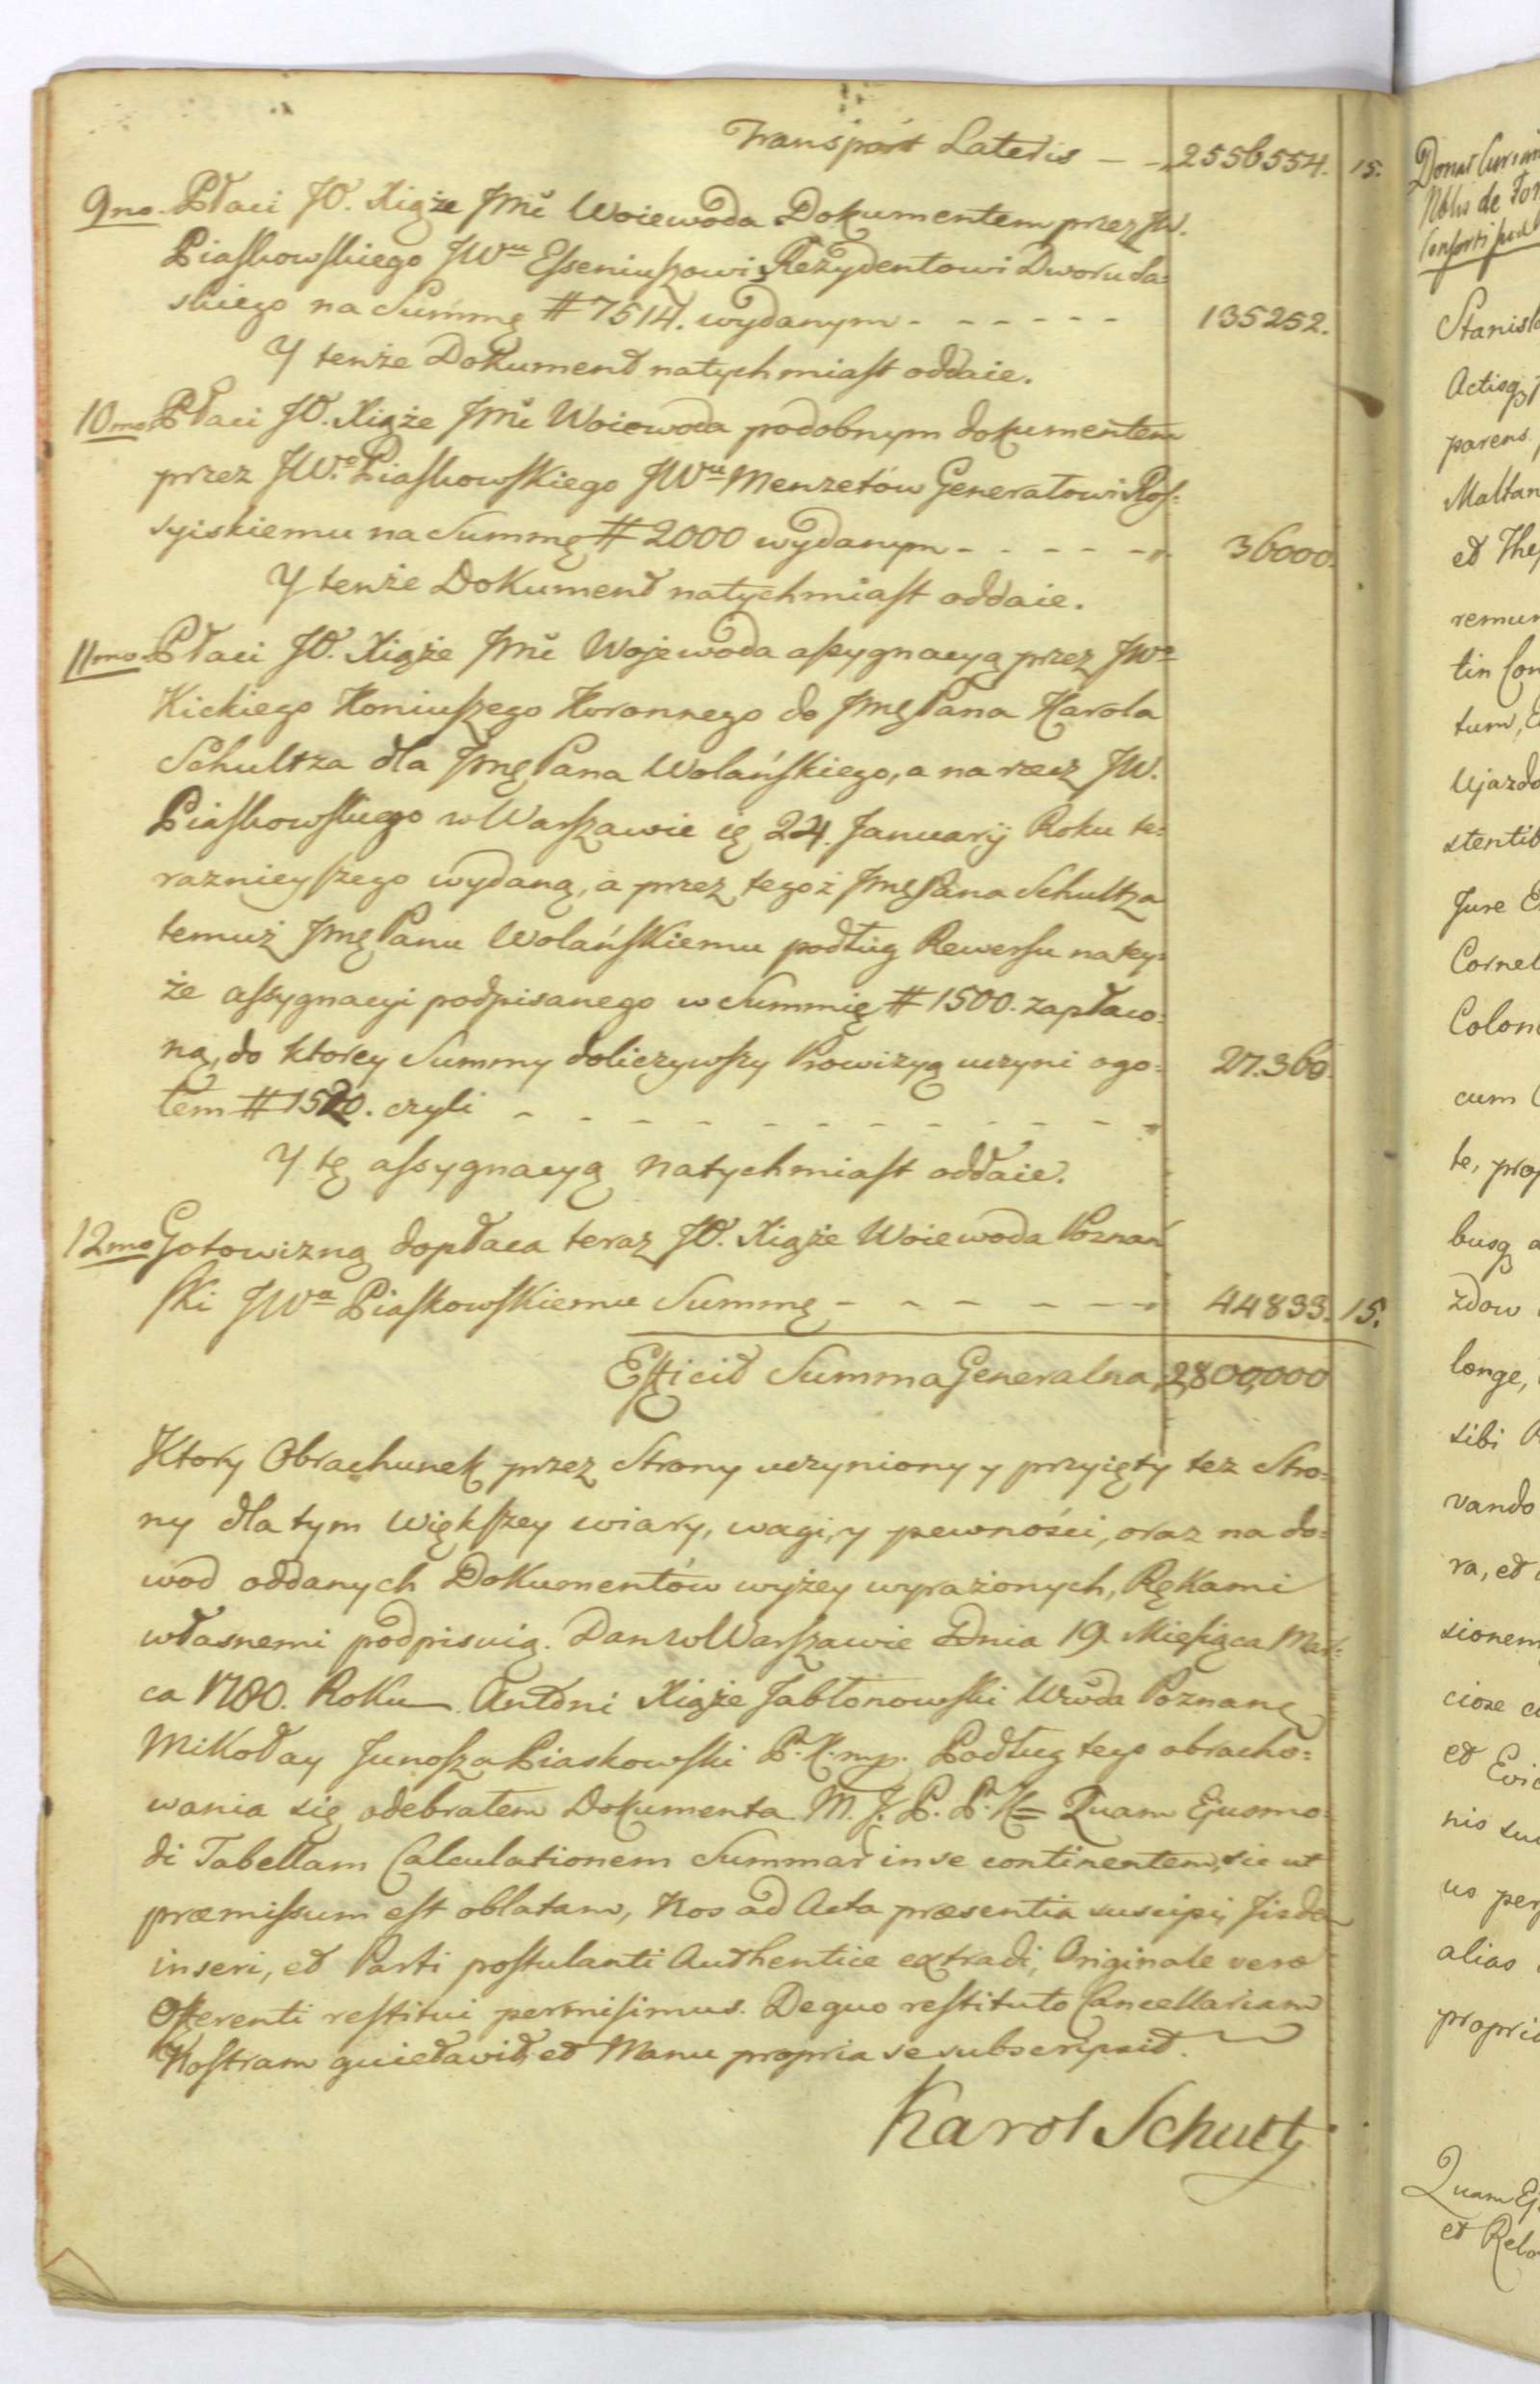 Transport Lateris — — 2556554. 15.
9no. Płaci JO. Xiąże Jmć Woiewoda Dokumentem przez JW.
Piaskowskiego JWu Esseniuszowi Rezydentowi Dworu Sa=
skiego na Summę # 7514. wydanym - - - - - - 135252.
Y tenże Dokument natychmiast oddaie.
10mo. Płaci JO. Xiąże Jmć Woiewoda podobnym dokumentem
przez JWo Piaskowskiego JWu Menzetów Generałowi Ros=
syiskiemu na Summę # 2000 wydanym - - - - - 36000.
Y tenże Dokument natychmiast oddaie.
11mo. Płaci JO. Xiąże Jmć Wojewoda assygnacyą przez JWo
Kickiego Koniuszego Koronnego do Jmę Pana Karola
Schultza dla Jmę Pana Wolańskiego, a na rzecz JW.
Piaskowskiego w Warszawie ię 24. Januarij Roku te=
raznieyszego wydaną, a przez tegoż Jmę Pana Schultza
temuż Jmę Panu Wolańskiemu podług Rewersu na tey=
że assygnacyi podpisanego w Summię # 1500. zapłaco=
ną, do ktorey Summy doliczywszy Prowizyą uczyni ogo= 27.360.
łem # 1520. czyli - - - - - - - - - - -
Y tę assygnacyą natychmiast oddaie.
12mo Gotowizną dopłaca teraz JO. Xiąże Woiewoda Poznań
ski JWu Piaskowskiemu Summę - - - - - - 44833. 15.
Efficit Summa Generalna 2,800,000
Ktory Obrachunek przez Strony uczyniony y przyięty też Stro=
ny dla tym większey wiary, wagi, y pewności, oraz na do=
wod oddanych Dokumentów wyżey wyrażonych, Rękami
własnemi podpisuią. Dan w Warszawie Dnia 19. Miesiąca Mar=
ca 1780. Roku — Antoni Xiąże Jabłonowski Wwda Poznanę
Mikołay Junosza Piaskowski P. K. mp. Podług tego obracho=
wania się odebrałem Dokumenta M. J. P. P. K = Quam Ejusmo=
di Tabellam Calculationem Summar in se continentem, sic ut
præmissum est oblatam, Nos ad Acta præsentia suscipi, Jisde
inseri, et Parti postulanti Authentice extradi, Originale vero
Offerenti restitui permisimus. De quo restituto Cancellariam
Nostram quietavit, et Manu propria se subscripsit.
Karol Schultz
Nobis de
Stanisl
Actisq
parens
Maltan
et The
remun
tin Con
tum,
Ujazdo
stentib
Jure
Cornel
Colon
cum
te, prop
busq
zdow
longe,
sibi
vando
ra, et
sionem
cione
et Evic
nis su
us per
alias
propri
Quam Ej
et Rela